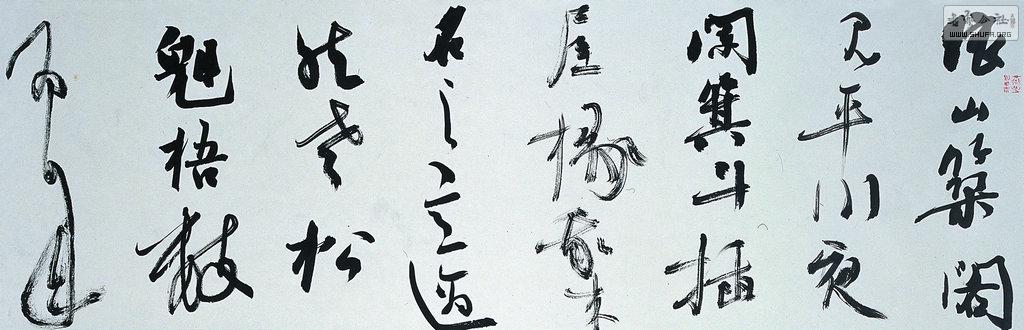 依山築閣
見平川夜
闌箕斗插
屋椽我来
名之意適
然老松
魁梧數
百年
公社
WWW.SHUFA.ORG